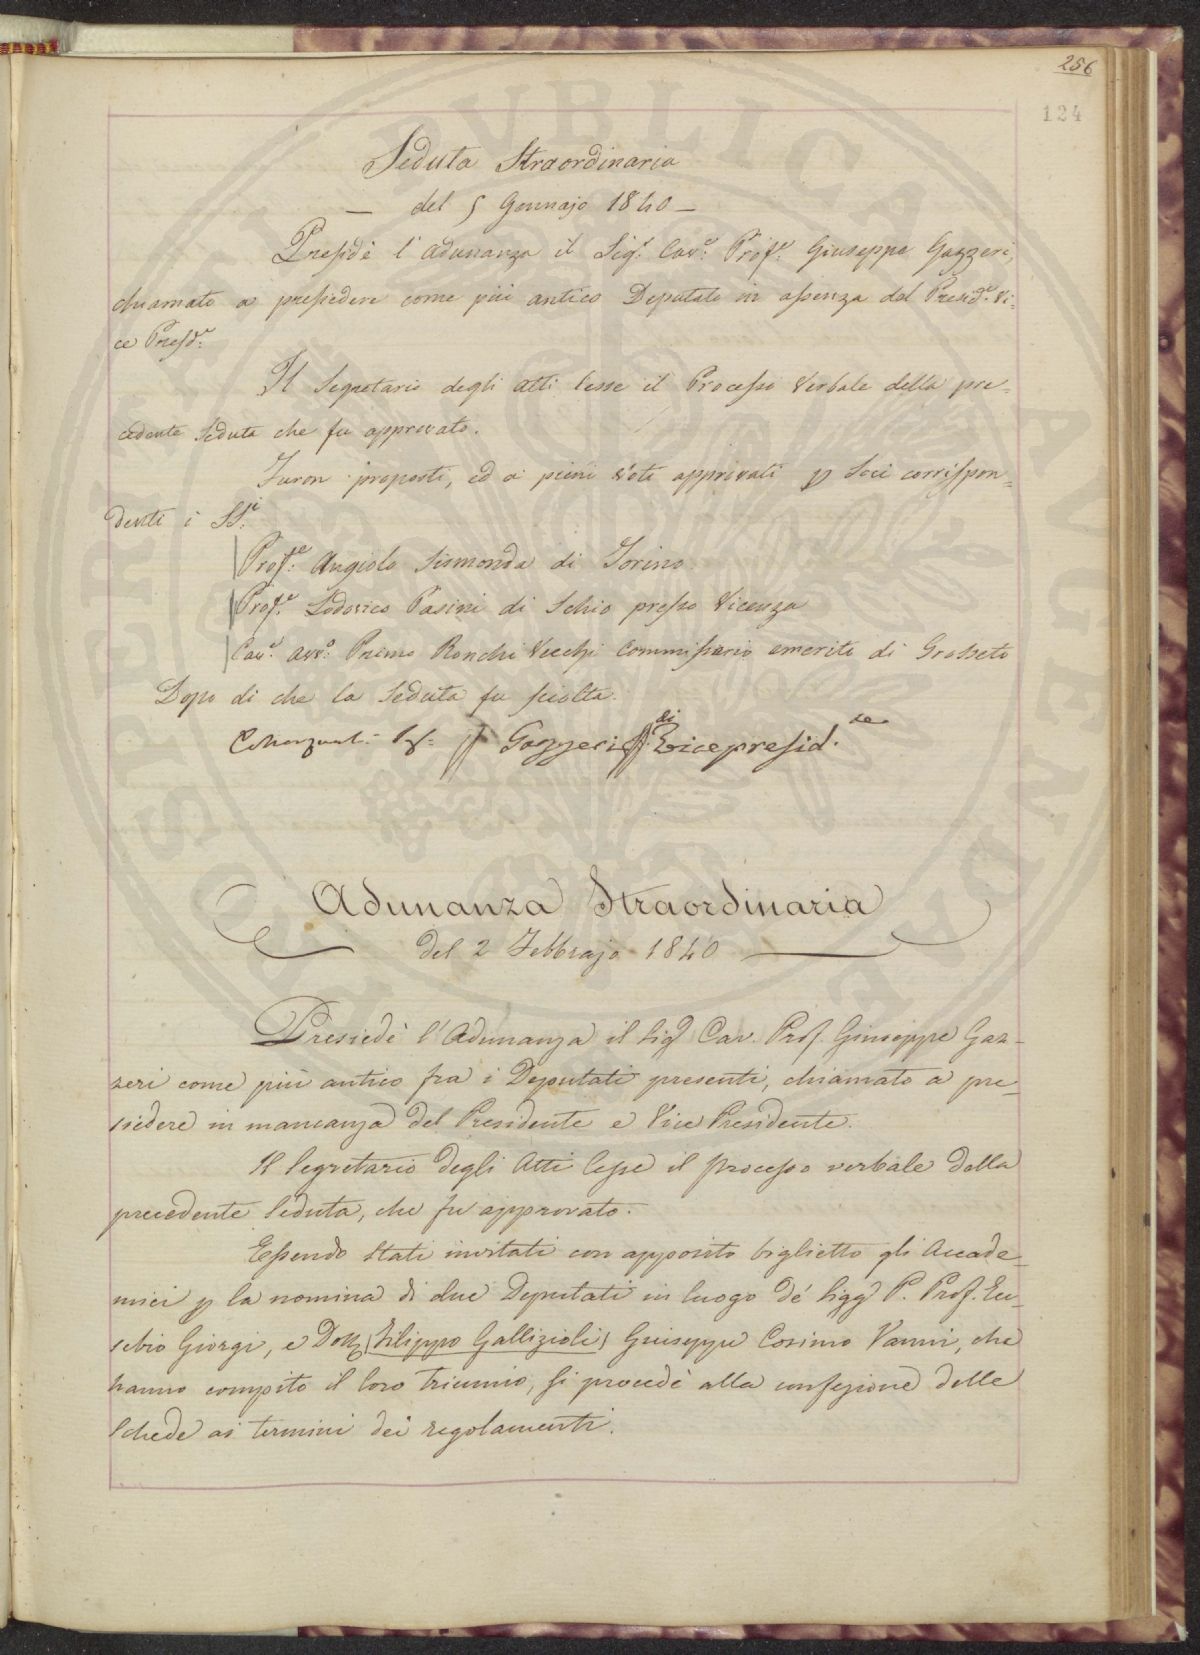 256
124
Seduta Straordinaria
— del 5 Gennajo 1840 —
Presiedè l'adunanza il Sigr. Cavre. Profre. Giuseppe Gazzeri,
chiamato a presiedere come più antico Deputato in assenza del Presidte. Vi-
ce Presdte.
Il Segretario degli atti lesse il Processo Verbale della pre-
cedente Seduta che fu approvato.
Furon proposti, ed a pieni Voti approvati p Soci corrispon-
denti i SSri.
Profre. Angiolo Sismonda di Torino
Profre. Lodovico Pasini di Schio presso Vicenza
Cavre. Avvo. Primo Ronchi Vecchi Commissario emerito di Grosseto
Dopo di che la Seduta fu sciolta.
Gazzeri ff di Vicepresid.te
Adunanza Straordinaria
del 2 Febbrajo 1840
Presiedè l'Adunanza il Sigr Cav. Prof. Giuseppe Gaz-
zeri come più antico fra i Deputati presenti, chiamato a pre-
siedere in mancanza del Presidente e Vice Presidente.
Il Segretario degli Atti lesse il processo verbale della
precedente Seduta, che fu approvato.
Essendo Stati invitati con apposito biglietto gli Accade-
mici p la nomina di due Deputati in luogo de' Sigg P. Prof. Eu-
sebio Giorgi, e Dott (Filippo Gallizioli) Giuseppe Cosimo Vanni, che
hanno compito il loro Triennio, si procedè alla confezione delle
Schede ai termini dei regolamenti.